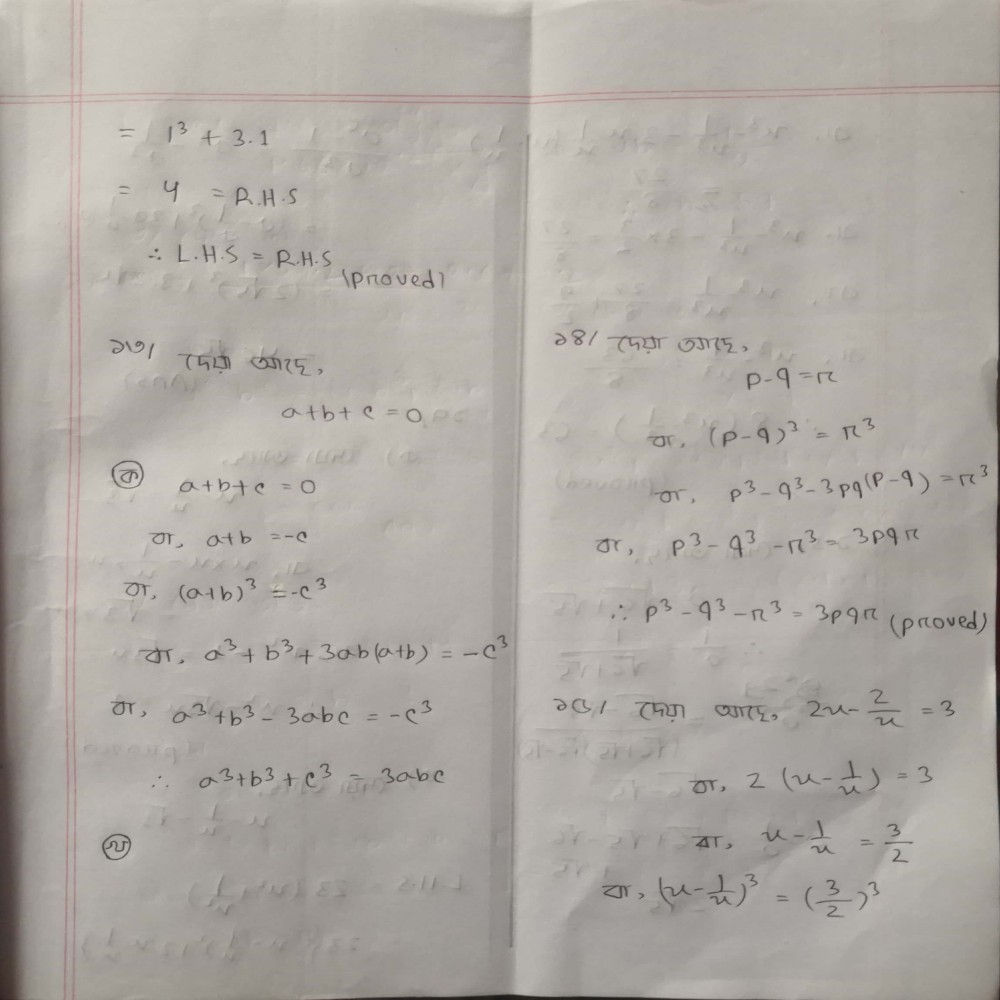 = 1³ + 3.1
= 4 = R.H.S
∴ L.H.S = R.H.S
(proved)
১৩। দেয়া আছে,
a+b+c = 0
(ক) a+b+c = 0
বা, a+b = -c
বা, (a+b)³ = -c³
বা, a³+b³+3ab(a+b) = -c³
বা, a³+b³-3abc = -c³
∴ a³+b³+c³ = 3abc
(খ)
১৪। দেয়া আছে,
p-q = r
বা, (p-q)³ = r³
বা, p³-q³-3pq(p-q) = r³
বা, p³-q³-r³ = 3pqr
∴ p³-q³-r³ = 3pqr (proved)
১৫। দেয়া আছে, 2x - 2/x = 3
বা, 2 (x - 1/x) = 3
বা, x - 1/x = 3/2
বা, (x - 1/x)³ = (3/2)³